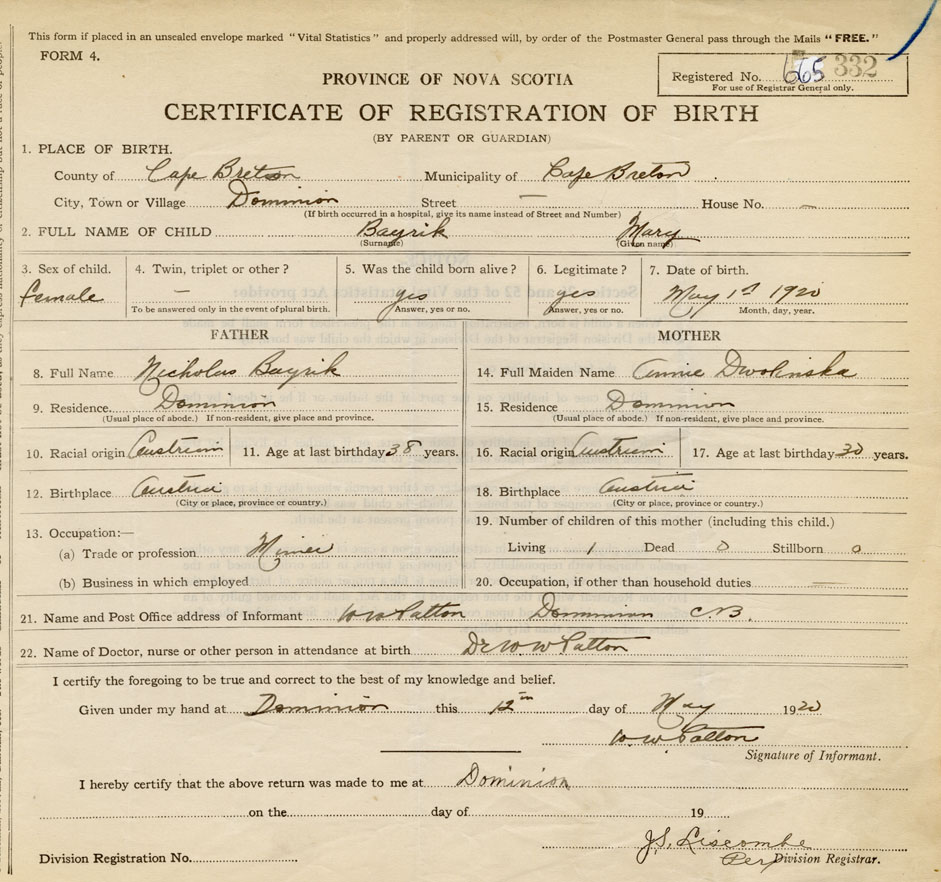 This form if placed in an unsealed envelope marked "Vital Statistics" and properly addressed will, by order of the Postmaster General pass through the Mails "FREE."
FORM 4.
PROVINCE OF NOVA SCOTIA
Registered No. 665 332
For use of Registrar General only.
CERTIFICATE OF REGISTRATION OF BIRTH
(BY PARENT OR GUARDIAN)
1. PLACE OF BIRTH.
County of Cape Breton Municipality of Cape Breton
City, Town or Village Dominion Street — House No. —
(If birth occurred in a hospital, give its name instead of Street and Number)
2. FULL NAME OF CHILD Bayrik Mary
(Surname) (Given name)
3. Sex of child. 4. Twin, triplet or other? 5. Was the child born alive? 6. Legitimate? 7. Date of birth.
female — yes yes May 1st 1920
To be answered only in the event of plural birth. Answer, yes or no. Answer, yes or no. Month, day, year.
FATHER MOTHER
8. Full Name Nicholas Bayrik 14. Full Maiden Name Annie Dwolinska
9. Residence Dominion 15. Residence Dominion
(Usual place of abode.) If non-resident, give place and province. (Usual place of abode.) If non-resident, give place and province.
10. Racial origin Austrian 11. Age at last birthday 38 years. 16. Racial origin Austrian 17. Age at last birthday 30 years.
12. Birthplace Austria 18. Birthplace Austria
(City or place, province or country.) (City or place, province or country.)
13. Occupation:— 19. Number of children of this mother (including this child.)
(a) Trade or profession Miner Living 1 Dead 0 Stillborn 0
(b) Business in which employed 20. Occupation, if other than household duties —
21. Name and Post Office address of Informant W W Patton Dominion C.B.
22. Name of Doctor, nurse or other person in attendance at birth Dr W. W Patton
I certify the foregoing to be true and correct to the best of my knowledge and belief.
Given under my hand at Dominion this 12th day of May 1920
W. W Patton
Signature of Informant.
I hereby certify that the above return was made to me at Dominion
on the day of 19
J.S. Liscombe
Division Registration No. Per Division Registrar.